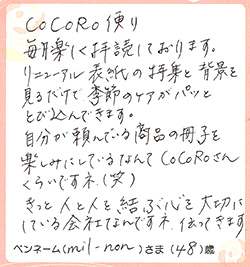 CoCoRo便り
毎月楽しく拝読しております。
リニューアル表紙の特集と背景を
見るだけで季節のケアがパッと
とび込んできます。
自分が頼んでいる商品の冊子を
楽しみにしているなんてCoCoRoさん
くらいですネ.(笑)
きっと人と人を結ぶ心を大切に
している会社なんですネ.伝ってきます
ペンネーム(mil-non)さま(48)歳